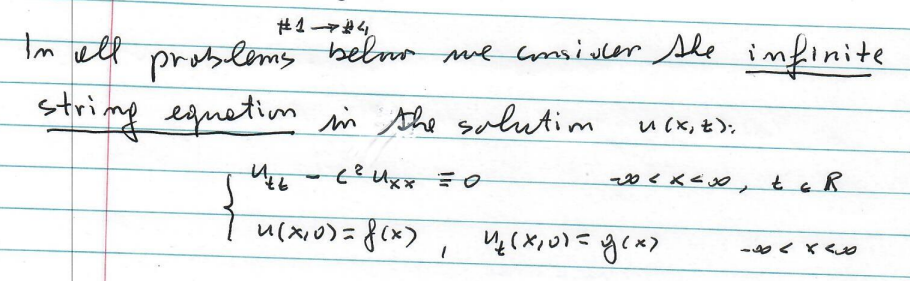 #1 → #4
In all problems below we consider the infinite
string equation in the solution u(x,t):
u_tt - c² u_xx ≡ 0 -∞ < x < ∞, t ∈ R
u(x,0) = f(x), u_t(x,0) = g(x) -∞ < x < ∞